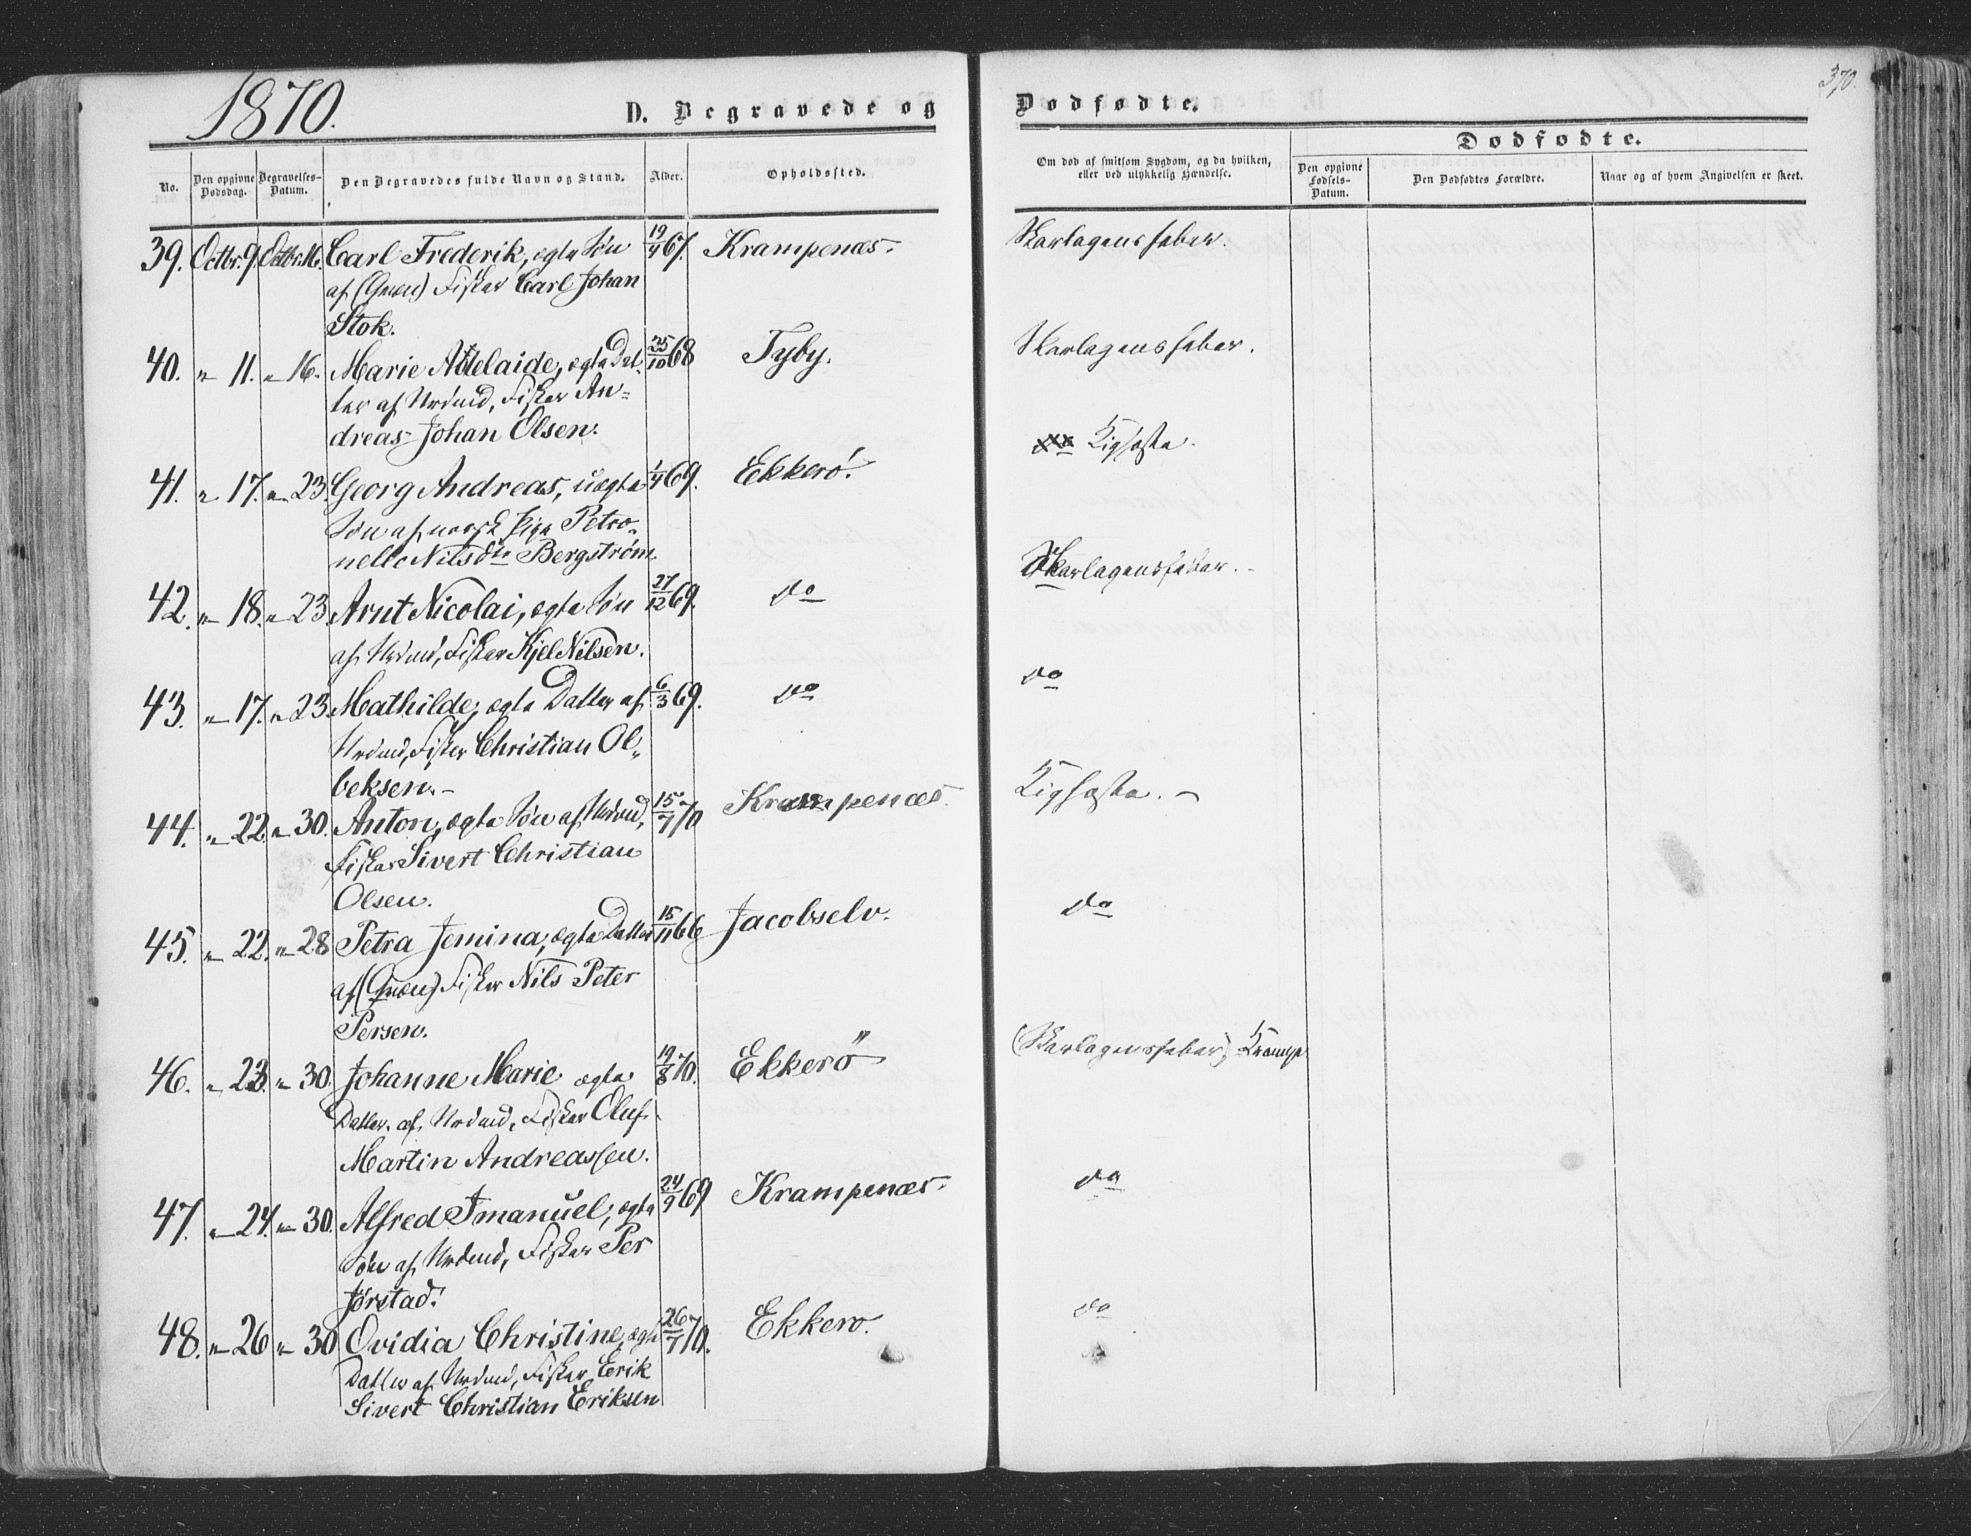 1870.
D. Begravede og
Dødfødte.
370.
No.
Den opgivne Dødsdag.
Begravelses-Datum.
Den Begravedes fulde Navn og Stand.
Alder.
Opholdssted.
Om død af smitsom Sygdom, og da hvilken, eller ved ulykkelig Hændelse.
Dødfødte.
Den opgivne Fødsels-Datum.
Den Dødfødtes Forældre.
Naar og af hvem Angivelsen er skeet.
39. Octbr. 9. Octbr. 16. Carl Frederik, ægte Søn 19/4 67. Krampenæs. Skarlagensfeber.
af (Qvæn) Fisker Carl Johan
Stok.
40. " 11. " 16. Marie Adelaide, ægte Dat- 25/10 68 Tyby. Skarlagensfeber.
ter af Nrdmd, Fisker An-
dreas Johan Olsen.
41. " 17. " 23. Georg Andreas, uægte 1/4 69. Ekkerö. Kighoste.
Søn af norsk Pige Petro-
nelle Nilsdtr Bergstrøm
42. " 18. " 23. Arnt Nicolai, ægte Søn 27/12 69. do Skarlagensfeber. -
af Nrdmd, Fisker Kjel Nilsen.
43. " 17. " 23. Mathilde, ægte Datter af 6/3 69. do do
Nrdmd, Fisker Christian Ol-
beksen. -
44. " 22. " 30. Anton, ægte Søn af Nrdmd, 15/7 70 Krampenæs. Kighoste. -
Fisker Sivert Christian
Olsen.
45. " 22. " 28 Petra Jemina, ægte Datter 15/11 66 Jacobselv. do
af (Qvæn) Fisker Nils Peter
Persen.
46. " 23. " 30. Johanne Marie ægte 19/8 70. Ekkerö (Skarlagensfeber) Krampe
Datter af Nrdmd, Fisker Oluf
Martin Andreassen.
47. " 24. " 30. Alfred Imanuel, ægte 24/9 69 Krampenæs. do
Søn af Nrdmd, Fisker Per
Jørstad.
48. " 26 " 30 Ovidia Christine, ægte 26/7 70. Ekkerø. do
Datter af Nrdmd, Fisker Erik
Sivert Christian Eriksen